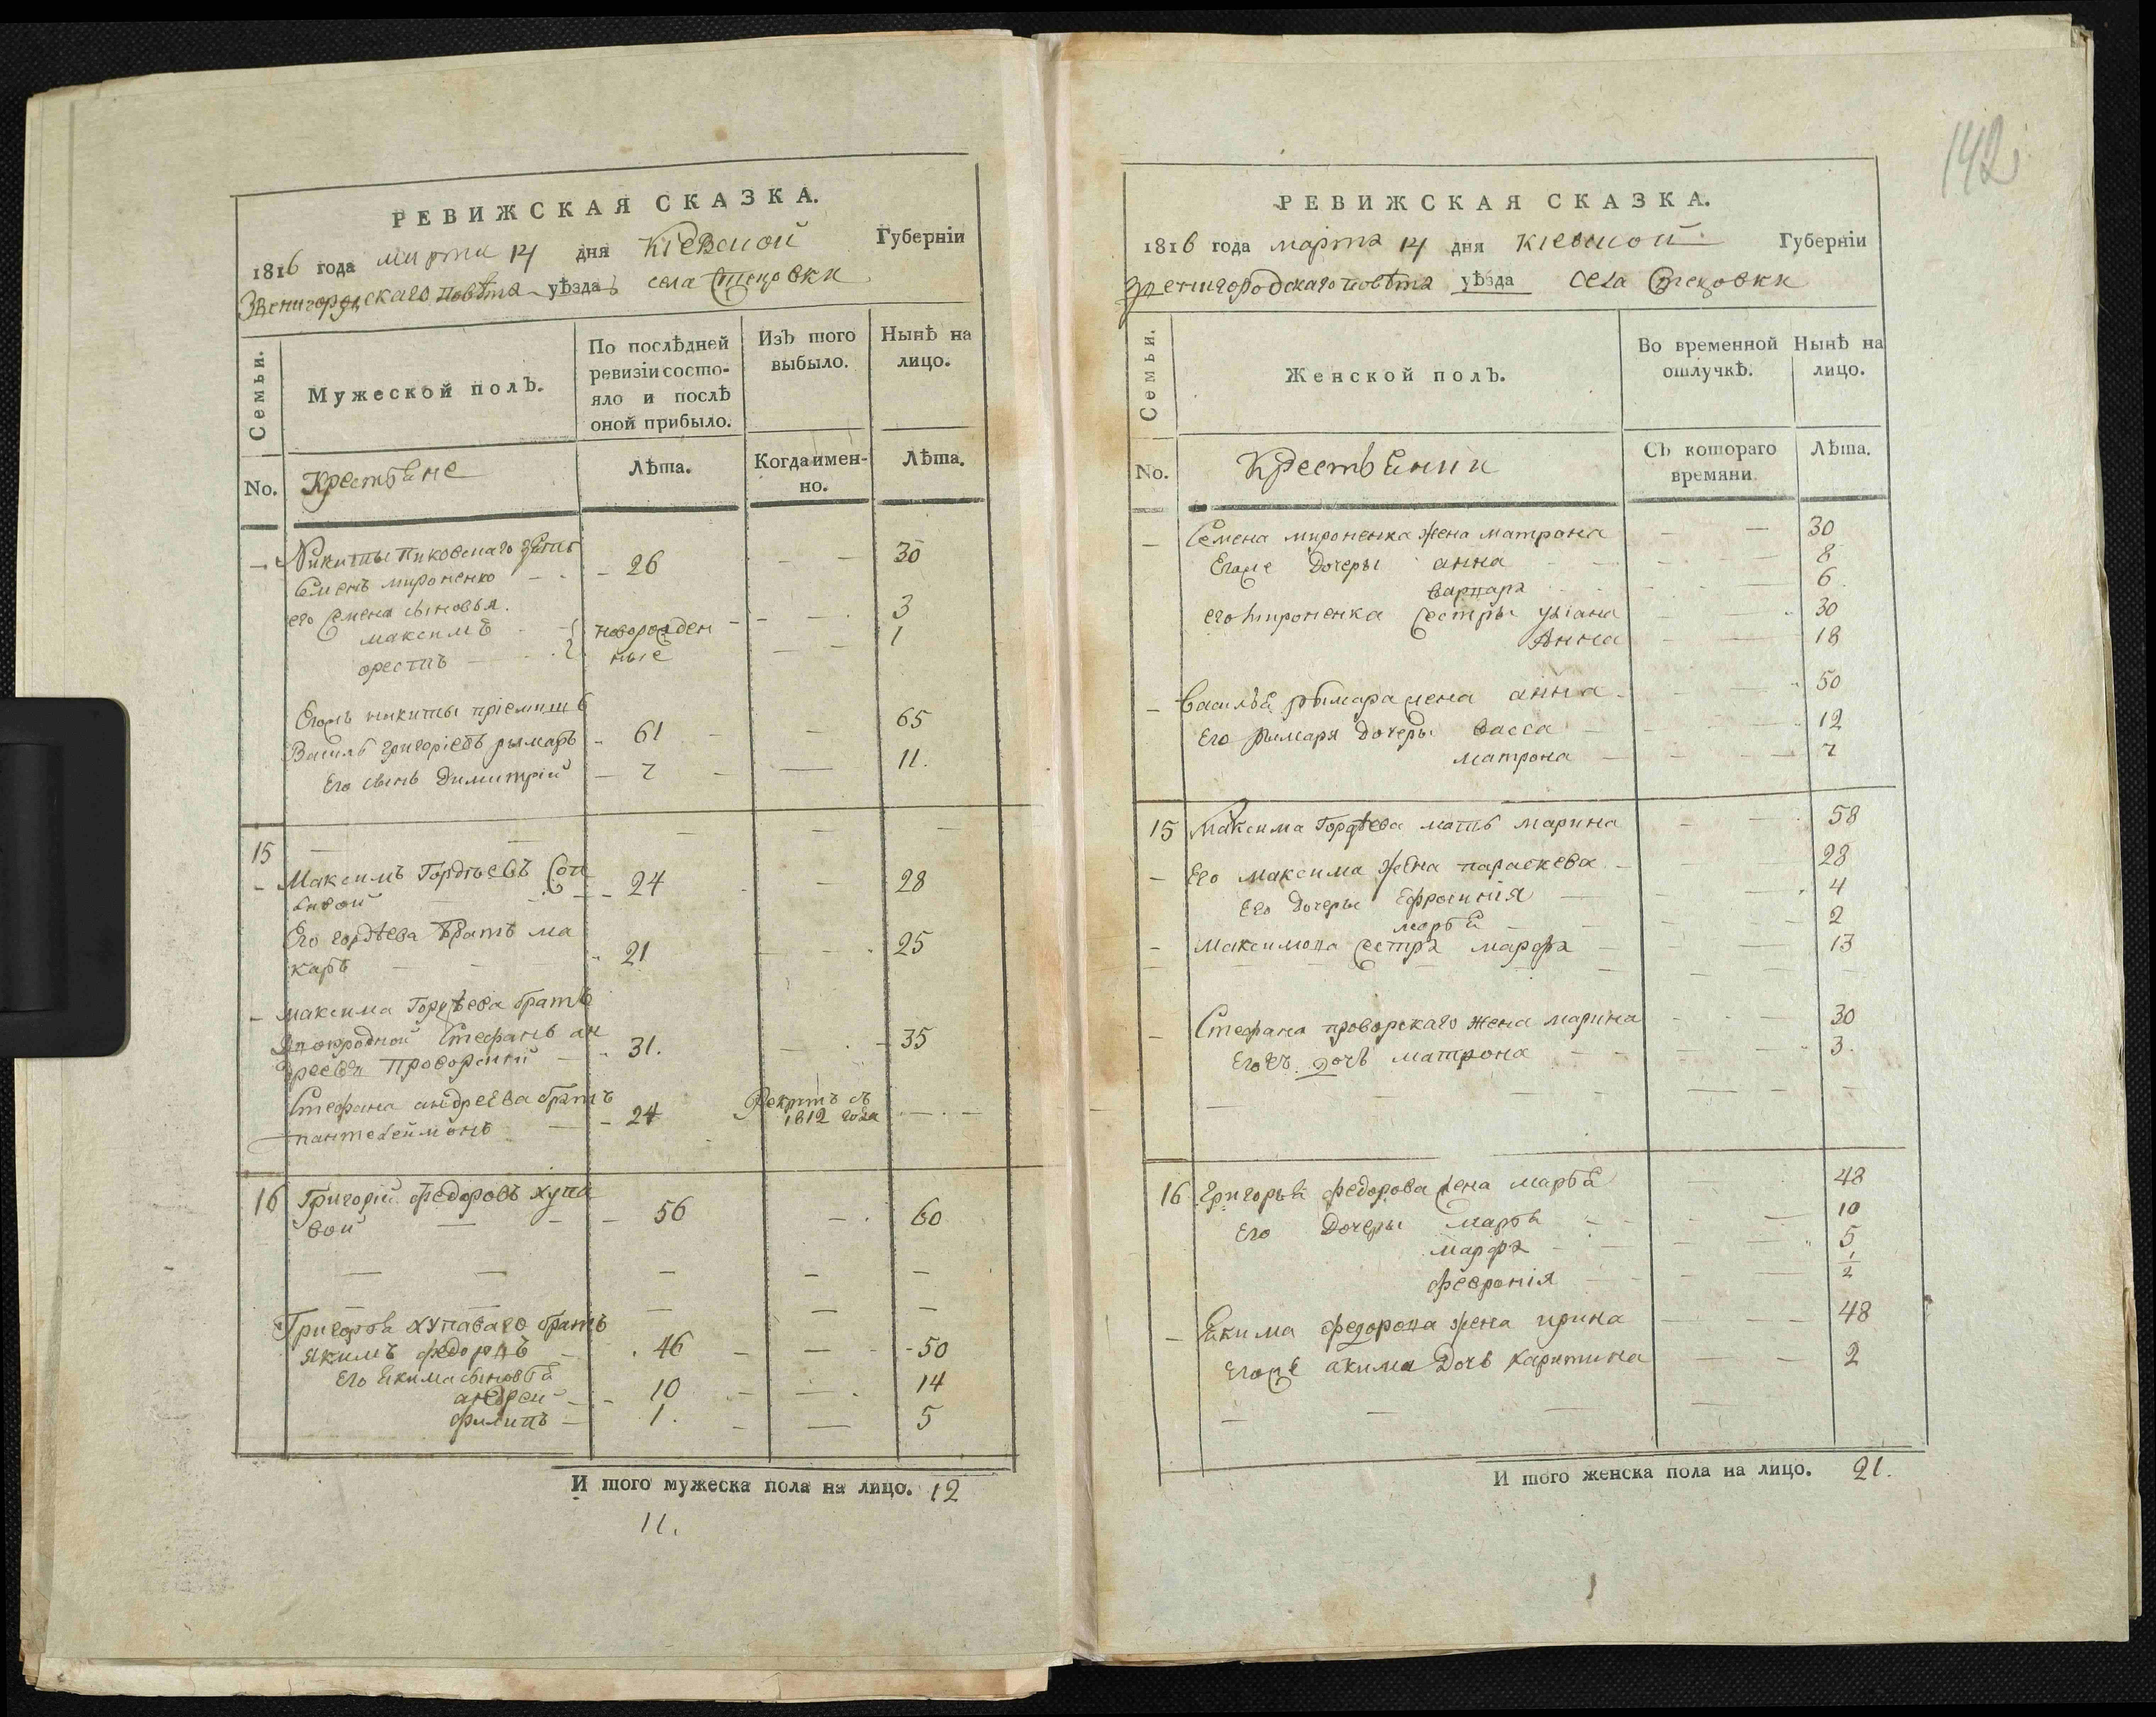 142
РЕВИЖСКАЯ СКАЗКА.
1816 года марта 14 дня Кіевской Губерніи
Звенигородскаго повѣта уѣзда села Стецовки
Семьи.
Мужеской полЪ.
По послѣдней ревизіи состояло и послѣ оной прибыло.
ИзЪ того выбыло.
Нынѣ на лицо.
No. Крестьяне
Лѣта.
Когда именно.
Лѣта.
Никиты Пиковскаго зять
Семенъ мироненко 26 30
его Семена сыновья.
максимъ новорожден 3
орестъ ные 1
Егожъ никиты пріемышъ
Василь григоріевъ рымарь 61 65
Его сынъ Димитрій 7 11.
15
Максимъ Гордѣевъ Соп
ливой 24 28
Его гордѣева братъ ма
каръ 21 25
максима Гордѣева братъ
Стефанъ ан
дреевъ Проворский 31. 35
Стефана андреева братъ
пантелеймонъ 24 Рекрутъ съ 1812 года
16 Григорій федоровъ хупа
вой 56 60
Григорья хупаваго братъ
Якимъ федоровъ 46 50
Его Якима сыновья
андрей 10 14
филипъ 1. 5
И того мужеска пола на лицо. 12
11.
РЕВИЖСКАЯ СКАЗКА.
1816 года марта 14 дня Кіевской Губерніи
Звенигородскаго повѣта уѣзда села Стецовки
Семьи.
Женской полЪ.
Во временной отлучкѣ.
Нынѣ на лицо.
No. Крестьянки
СЪ котораго времяни.
Лѣта.
Семена мироненка жена матрона 30
Егоже Дочеры анна 8
варвара 6.
его мироненка сестры уліана 30
Анна 18
Василья рымара жена анна 50
Его рымаря Дочеры васса 12
матрона 7
15 Максима Гордѣева мать марина 58
Его максима жена параскева 28
Его Дочеры Ефросинія 4
марья 2
максимова сестра марфа 13
Стефана проворскаго жена марина 30
Егожъ дочь матрона 3.
16 Григорья федорова жена марья 48
Его Дочеры марья 10
марфа 5
февронія 1/2
Якима федорова жена ирина 48
Егоже акима Дочь харитина 2
И того женска пола на лицо. 21.